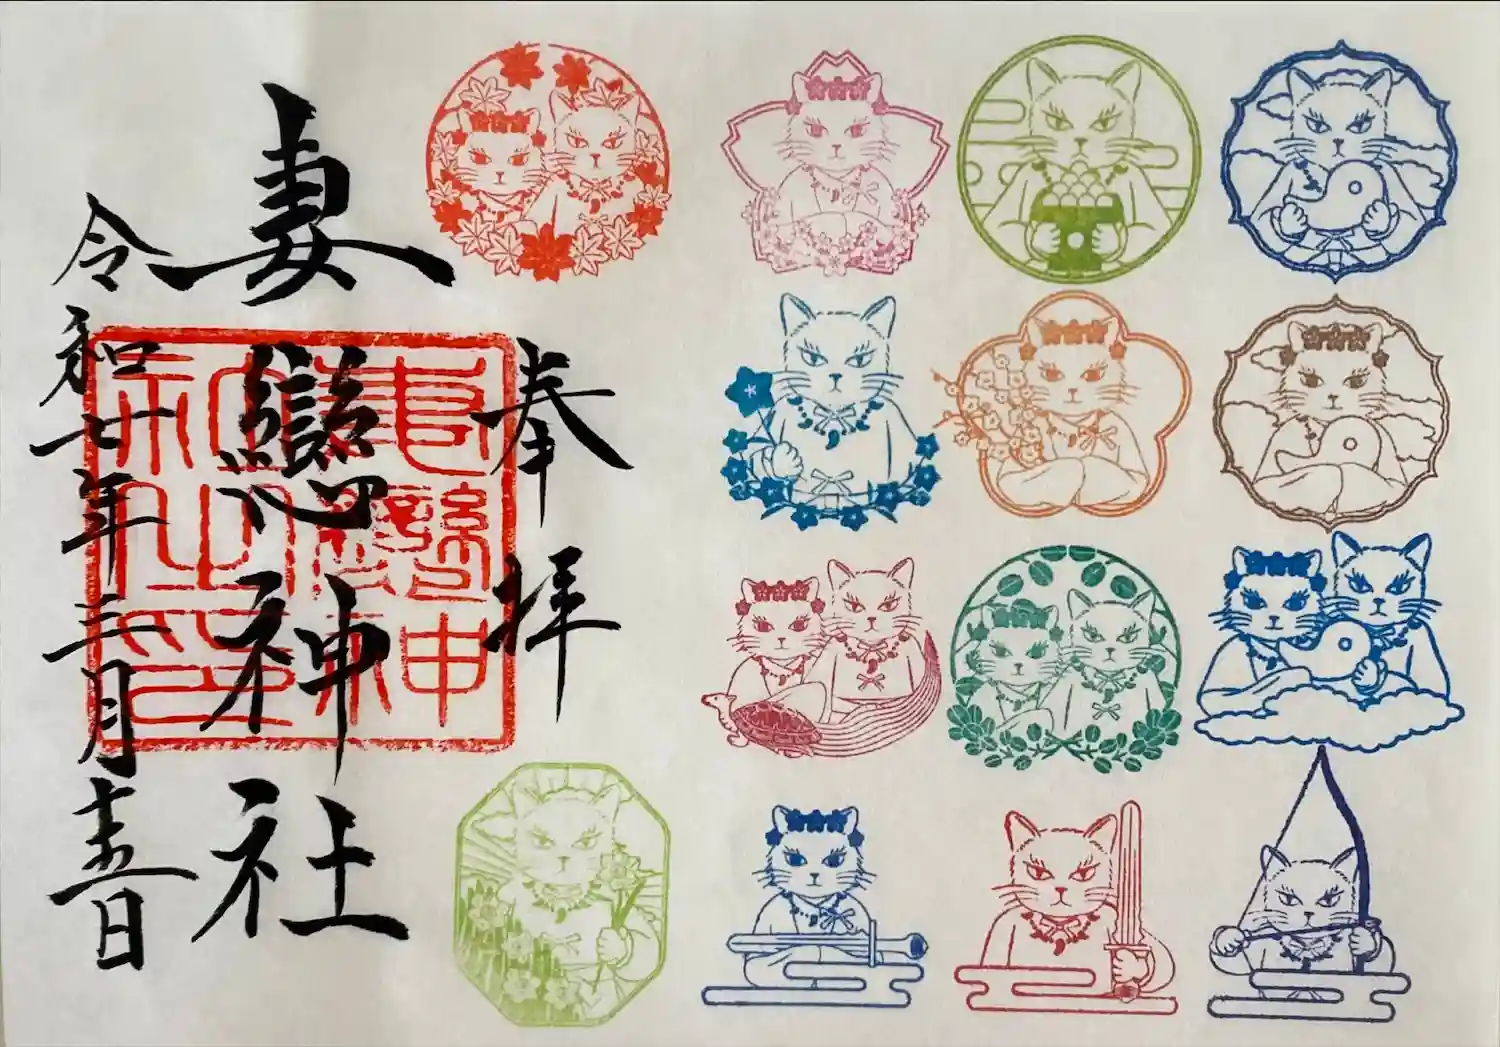 奉拝
妻戀神社
令和七年三月十五日
妻戀神
社之印